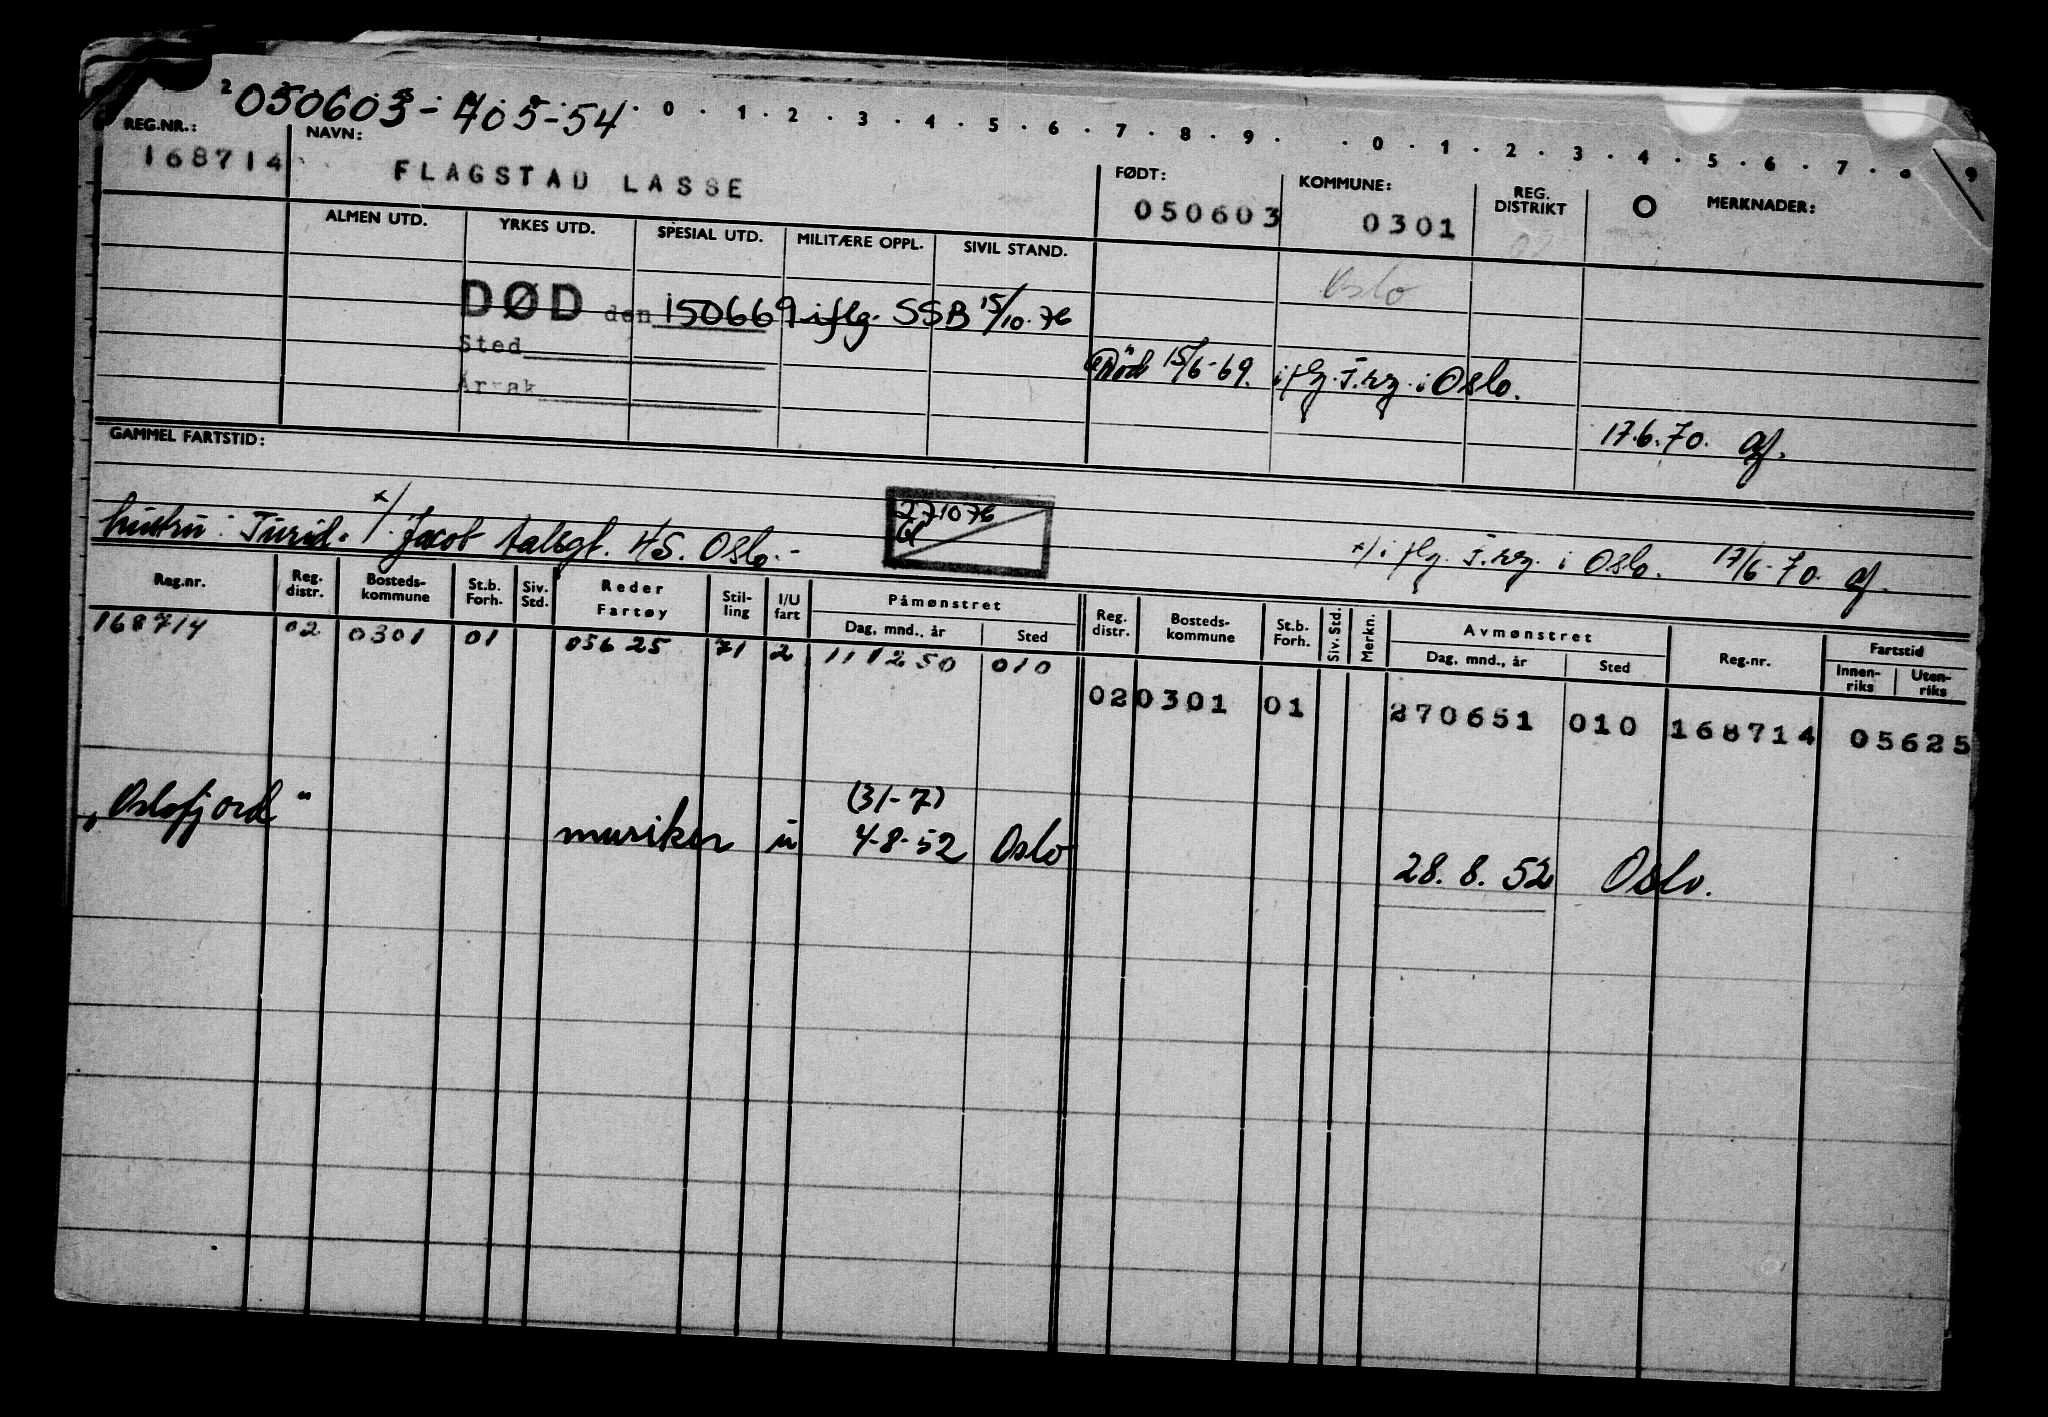 2 050603 - 405-54 . 0 . 1 . 2 . 3 . 4 . 5 . 6 . 7 . 8 . 9 . . 0 . 1 . 2 . 3 . 4 . 5 . 6 . 7 . 8 9
REG.NR.: NAVN: FØDT: KOMMUNE: REG. DISTRIKT O MERKNADER:
168714 FLAGSTAD LASSE 050603 0301 02
ALMEN UTD. YRKES UTD. SPESIAL UTD. MILITÆRE OPPL. SIVIL STAND.
Oslo
DØD den 150669 iflg. SSB 15/10.76
Sted
Årsak
Død 15/6-69. iflg. T.rg. i Oslo.
17.6.70.
GAMMEL FARTSTID:
271076
hustru: Turid. x/ Jacob Aalsgt. 45. Oslo.-
x/ iflg. T.rg. i Oslo. 17/6-70.
Reg.nr. Reg. distr. Bosteds-kommune St.b. Forh. Siv. Std. Reder Fartøy Stil-ling I/U fart Påmønstret Dag, mnd., år Sted Reg. distr. Bosteds-kommune St.b. Forh. Siv. Std. Merkn. Avmønstret Dag, mnd., år Sted Reg.nr. Fartstid Innen-riks Uten-riks
168714 02 0301 01 05625 71 2 111250 010
02 0301 01 270651 010 168714 05625
(31-7)
„Oslofjord" musiker u 4-8-52 Oslo
28. 8. 52 Oslo.